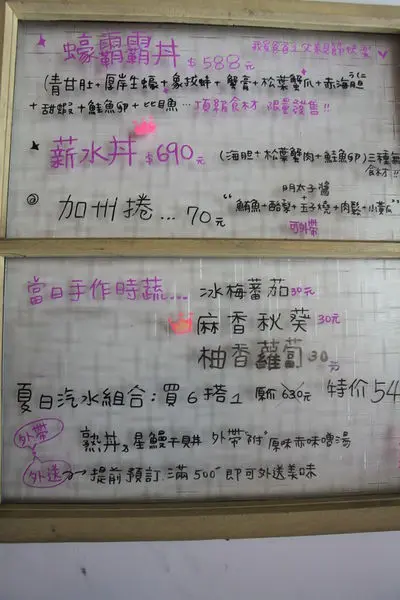 蠔霸霸丼 $588元
(青甘肚+厚岸生蠔+象拔蚌+蟹膏+松葉蟹爪+赤海胆
+甜蝦+鮭魚卵+比目魚...頂級食材 限量發售!!
薪水丼 $690元 (海胆+松葉蟹肉+鮭魚卵)三種
食材!!
加州捲...70元
明太子醬
"鮪魚+酪梨+玉子燒+肉鬆+小黃瓜"
可外帶
當日手作時蔬... 冰梅蕃茄30元
麻香秋葵30元
柚香蘿蔔30元
夏日汽水組合:買6搭1 原价630元 特价54
外帶 熟丼及星鰻干貝丼 外帶"附"原味赤味噌湯
外送 提前預訂.滿500-即可外送美味